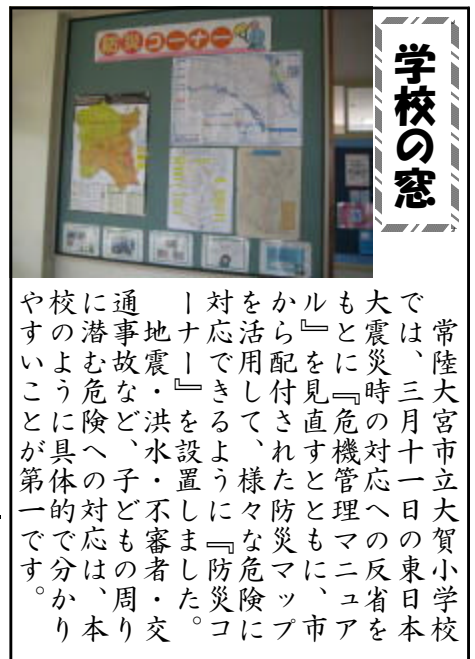 学校の窓
防災コーナー
常陸大宮市立大賀小学校
では、三月十一日の東日本
大震災時の対応への反省を
もとに『危機管理マニュア
ル』を見直すとともに、市
から配付された防災マップ
を活用して、様々な危険に
対応できるように『防災コ
ーナー』を設置しました。
地震・洪水・不審者・交
通事故など、子どもの周り
に潜む危険への対応は、本
校のように具体的で分かり
やすいことが第一です。